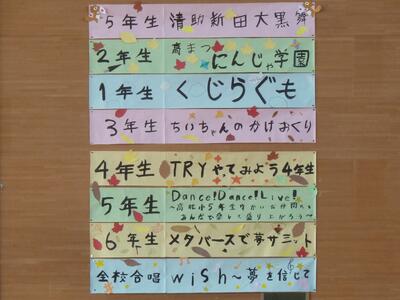 5年生 清助新田大黒舞
2年生 高まつにんじゃ学園
1年生 くじらぐも
3年生 ちいちゃんのかげおくり
4年生 TRYやってみよう4年生
5年生 Dance!Dance!Live!
みんなで楽しく盛り上がろう〜
6年生 メタバースで夢サミット
全校合唱 wish〜夢を信じて